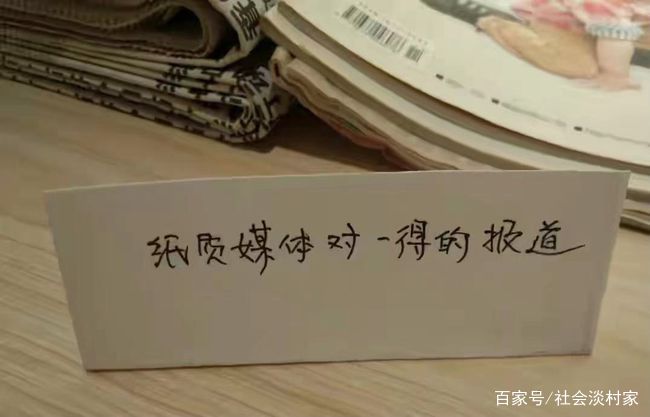 纸质媒体对一得的报道
百家号/社会淡村家